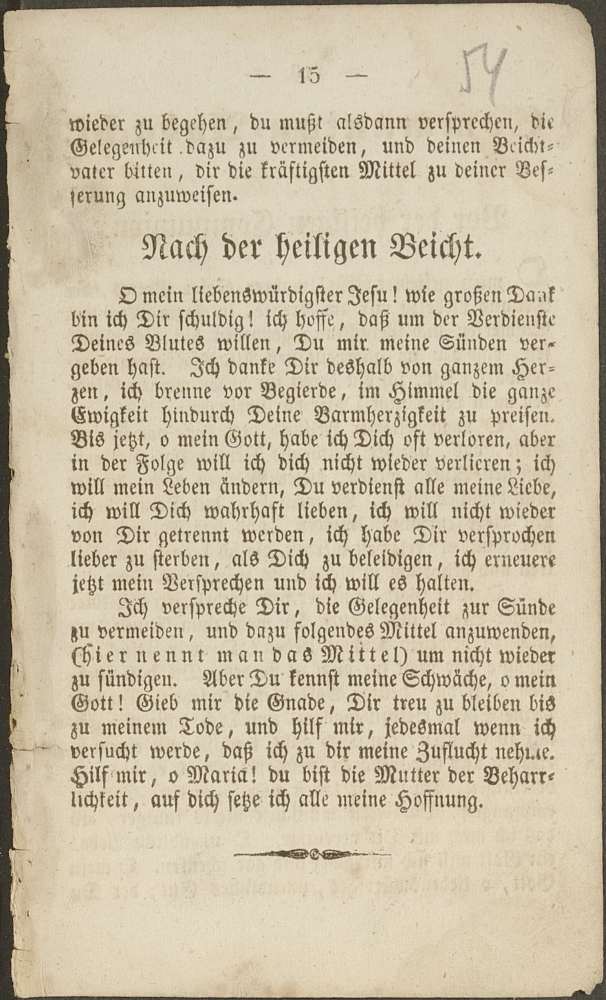 — 15 —
54
wieder zu begehen, du mußt alsdann versprechen, die
Gelegenheit dazu zu vermeiden, und deinen Beicht-
vater bitten, dir die kräftigsten Mittel zu deiner Bes-
serung anzuweisen.
Nach der heiligen Beicht.
O mein liebenswürdigster Jesu! wie großen Dank
bin ich Dir schuldig! ich hoffe, daß um der Verdienste
Deines Blutes willen, Du mir meine Sünden ver-
geben hast. Ich danke Dir deshalb von ganzem Her-
zen, ich brenne vor Begierde, im Himmel die ganze
Ewigkeit hindurch Deine Barmherzigkeit zu preisen.
Bis jetzt, o mein Gott, habe ich Dich oft verloren, aber
in der Folge will ich dich nicht wieder verlieren; ich
will mein Leben ändern, Du verdienst alle meine Liebe,
ich will Dich wahrhaft lieben, ich will nicht wieder
von Dir getrennt werden, ich habe Dir versprochen
lieber zu sterben, als Dich zu beleidigen, ich erneuere
jetzt mein Versprechen und ich will es halten.
Ich verspreche Dir, die Gelegenheit zur Sünde
zu vermeiden, und dazu folgendes Mittel anzuwenden,
(hier nennt man das Mittel) um nicht wieder
zu sündigen. Aber Du kennst meine Schwäche, o mein
Gott! Gieb mir die Gnade, Dir treu zu bleiben bis
zu meinem Tode, und hilf mir, jedesmal wenn ich
versucht werde, daß ich zu dir meine Zuflucht nehme.
Hilf mir, o Maria! du bist die Mutter der Beharr-
lichkeit, auf dich setze ich alle meine Hoffnung.